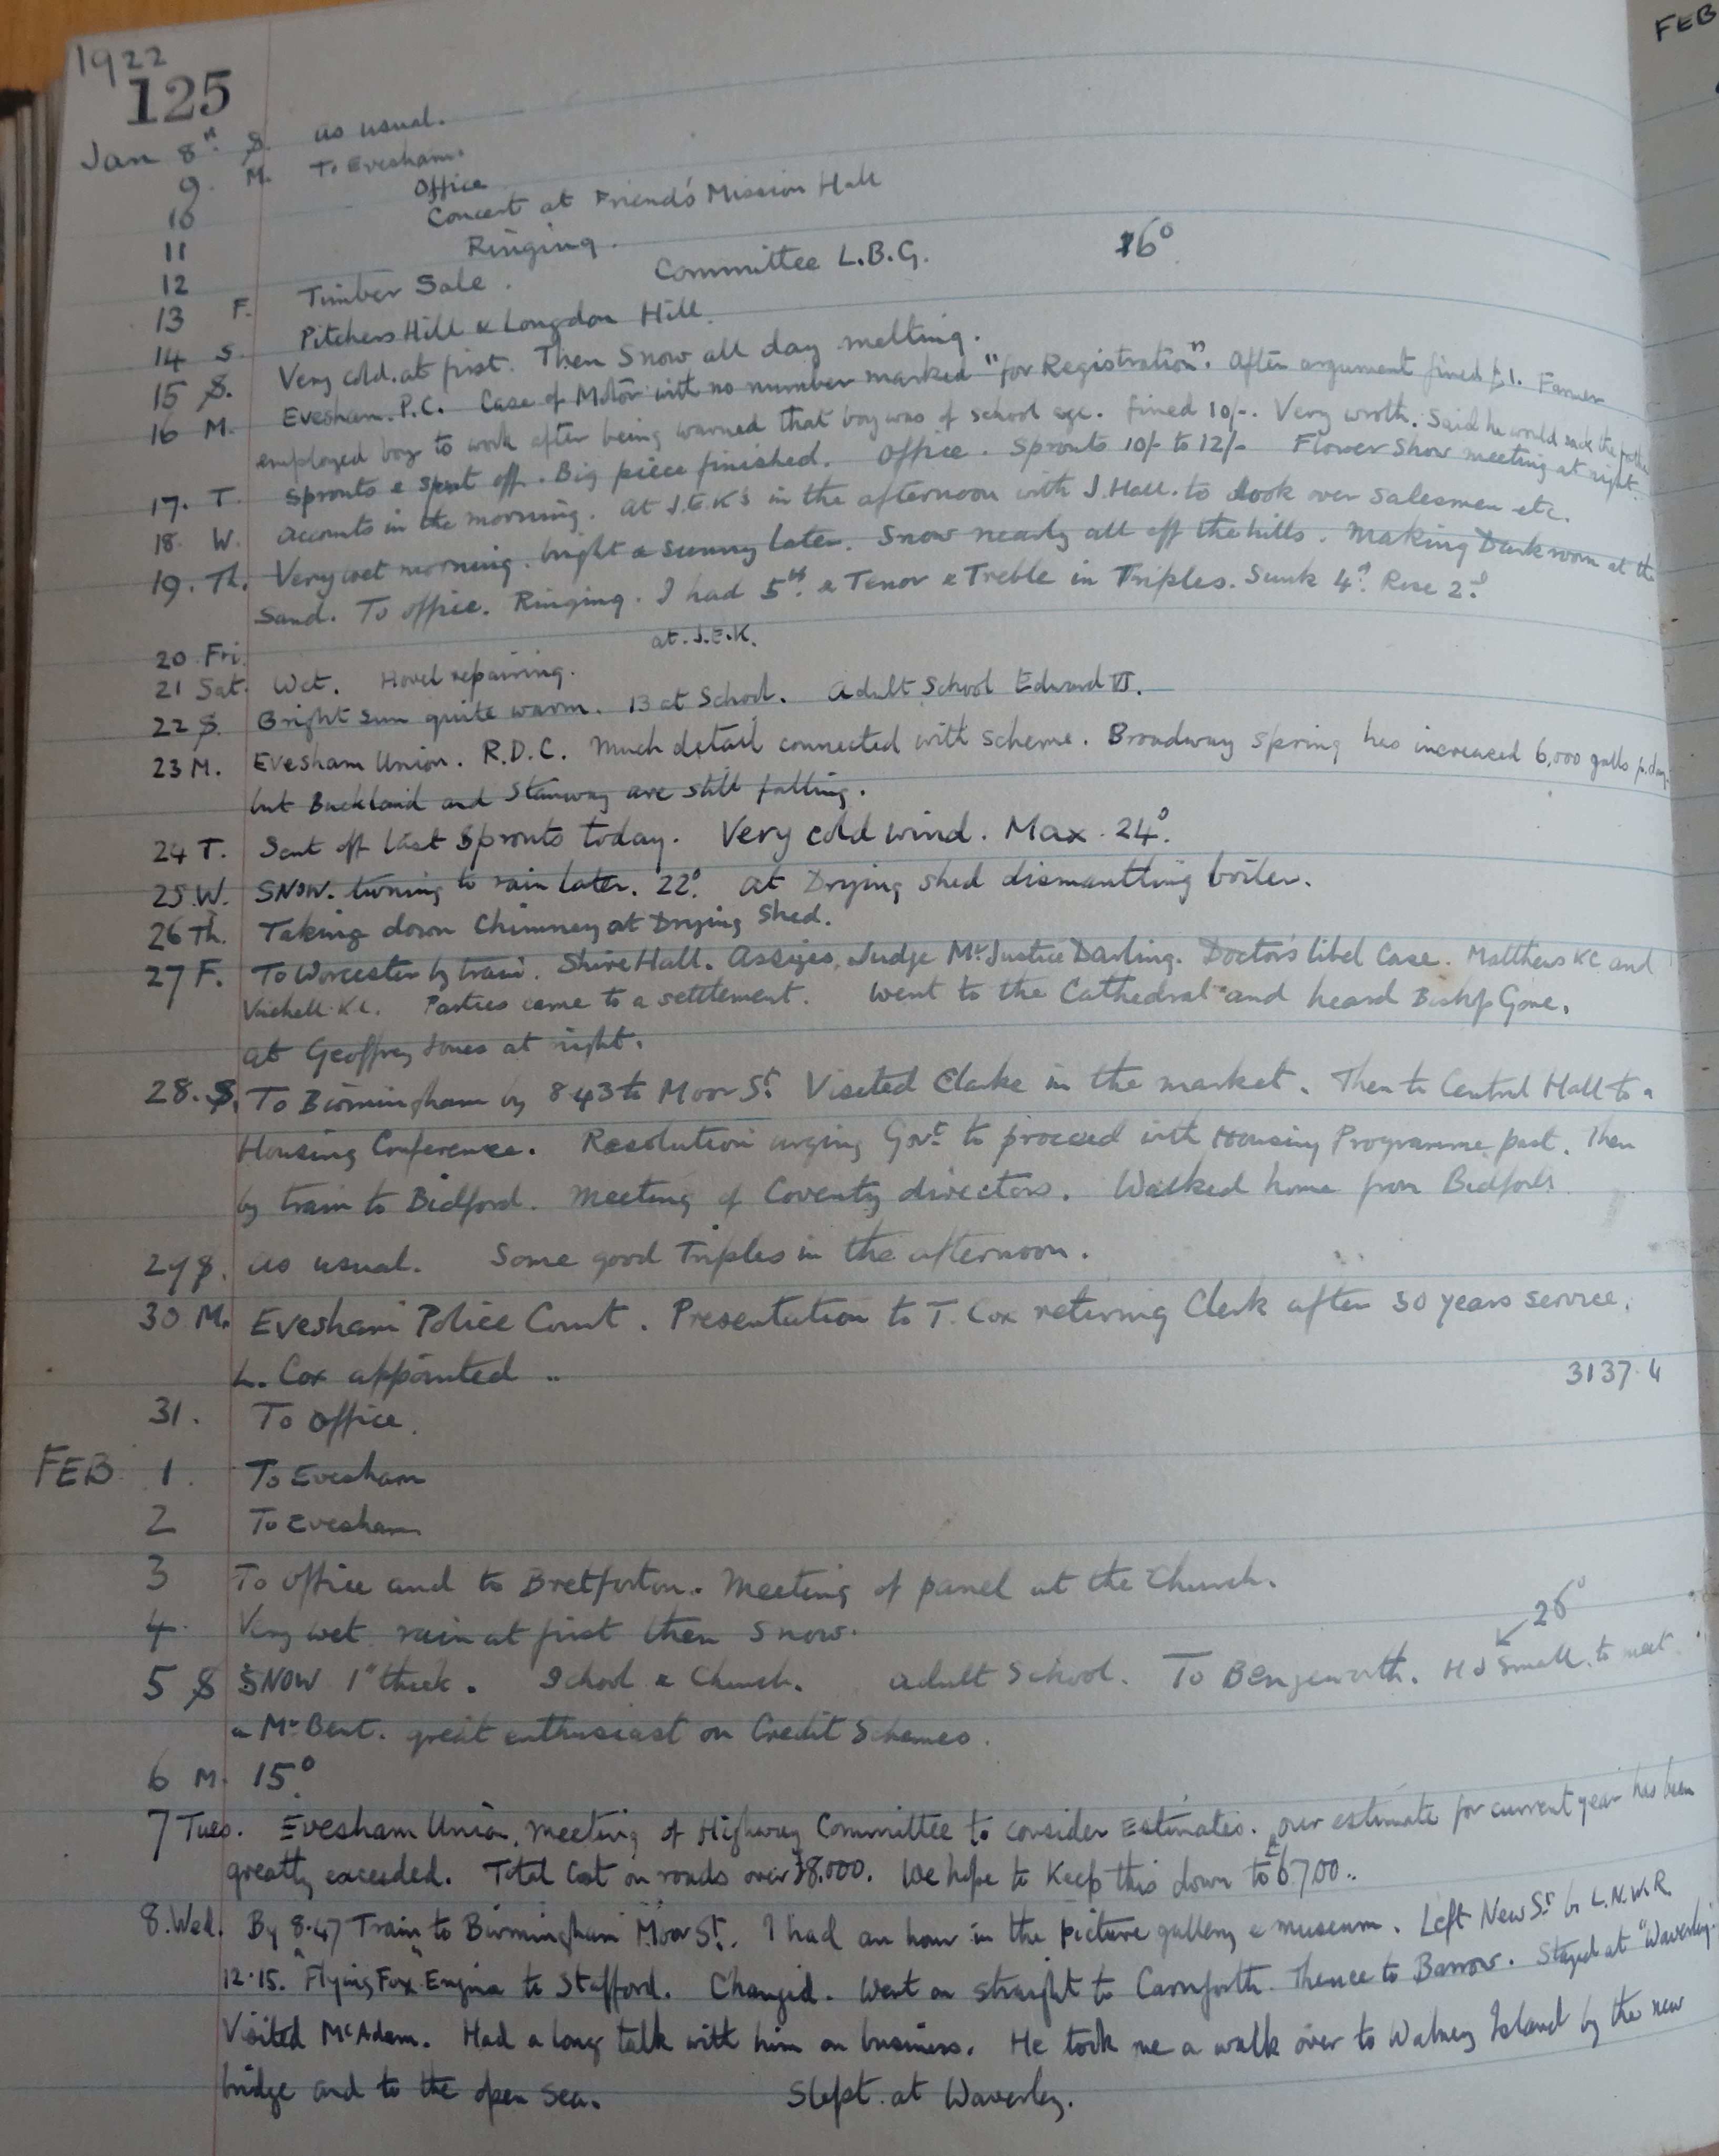 1922
125
FEB
Jan 8th S. as usual.
9. M. To Evesham.
10 Office
11 Concert at Friend's Mission Hall
12 Ringing.
13 F. Timber Sale. Committee L.B.G. 16°
14 S. Pitchers Hill & Longdon Hill.
15 S. Very cold at first. Then Snow all day melting.
16 M. Evesham P.C. Case of Motor with no number marked "for Registration". After argument fined £1. Farmer
employed boy to work after being warned that boy was of school age. fined 10/-. Very wroth. Said he would sack the father
17. T. Sprouts & sprout off. Big piece finished. Office. Sprouts 10/- to 12/- Flower Show meeting at night.
18. W. Accounts in the morning. At J.E.K's in the afternoon with J. Hall. to look over Salesmen etc.
19. Th. Very wet morning. bright & sunny later. Snow nearly all off the hills. Making Dark room at the
Sand. To office. Ringing. I had 5th & Tenor & Treble in Triples. Sunk 4d. Rose 2d.
20 Fri. at. J.E.K.
21 Sat. Wet. Hovel repairing.
22 S. Bright sun quite warm. 13 at School. Adult School Edward VI.
23 M. Evesham Union. R.D.C. Much detail connected with scheme. Broadway spring has increased 6,000 galls p. day.
but Buckland and Stanway are still falling.
24 T. Sent off last Sprouts today. Very cold wind. Max. 24°.
25 W. SNOW. turning to rain later. 22°. At Drying shed dismantling boiler.
26 Th. Taking down Chimney at Drying Shed.
27 F. To Worcester by train. Shire Hall. Assizes. Judge Mr Justice Darling. Doctor's libel Case. Matthews KC and
Vachell K.C. Parties came to a settlement. Went to the Cathedral and heard Bishop Gore.
at Geoffrey Jones at night.
28. S. To Birmingham by 8 43 to Moor St. Visited Clarke in the market. Then to Central Hall to a
Housing Conference. Resolution urging Govt to proceed with Housing Programme past. Then
by train to Bidford. Meeting of Coventry directors. Walked home from Bidford.
29 S. As usual. Some good Triples in the afternoon.
30 M. Evesham Police Court. Presentation to T. Cox retiring Clerk after 50 years service.
L. Cox appointed .. 3137.4
31. To Office.
FEB 1. To Evesham
2 To Evesham
3 To Office and to Bretforton. Meeting of panel at the Church.
4. Very wet. rain at first then snow.
26°
5 S SNOW 1" thick. School & Church. Adult School. To Bengeworth. H J Small. to meet
a Mr Bent. great enthusiast on Credit Schemes.
6 M. 15°.
7 Tues. Evesham Union, Meeting of Highway Committee to consider Estimates. our estimate for current year has been
greatly exceeded. Total Cost on roads over £8,000. We hope to keep this down to £6700..
8. Wed. By 8.47 Train to Birmingham Moor St. I had an hour in the picture gallery & museum. Left New St by L.N.W.R.
12.15. "Flying Fox" Engine to Stafford. Changed. Went on straight to Carnforth. Thence to Barrow. Stayed at "Waverley".
Visited McAdam. Had a long talk with him on business. He took me a walk over to Walney Island by the new
bridge and to the open sea. Slept at Waverley.